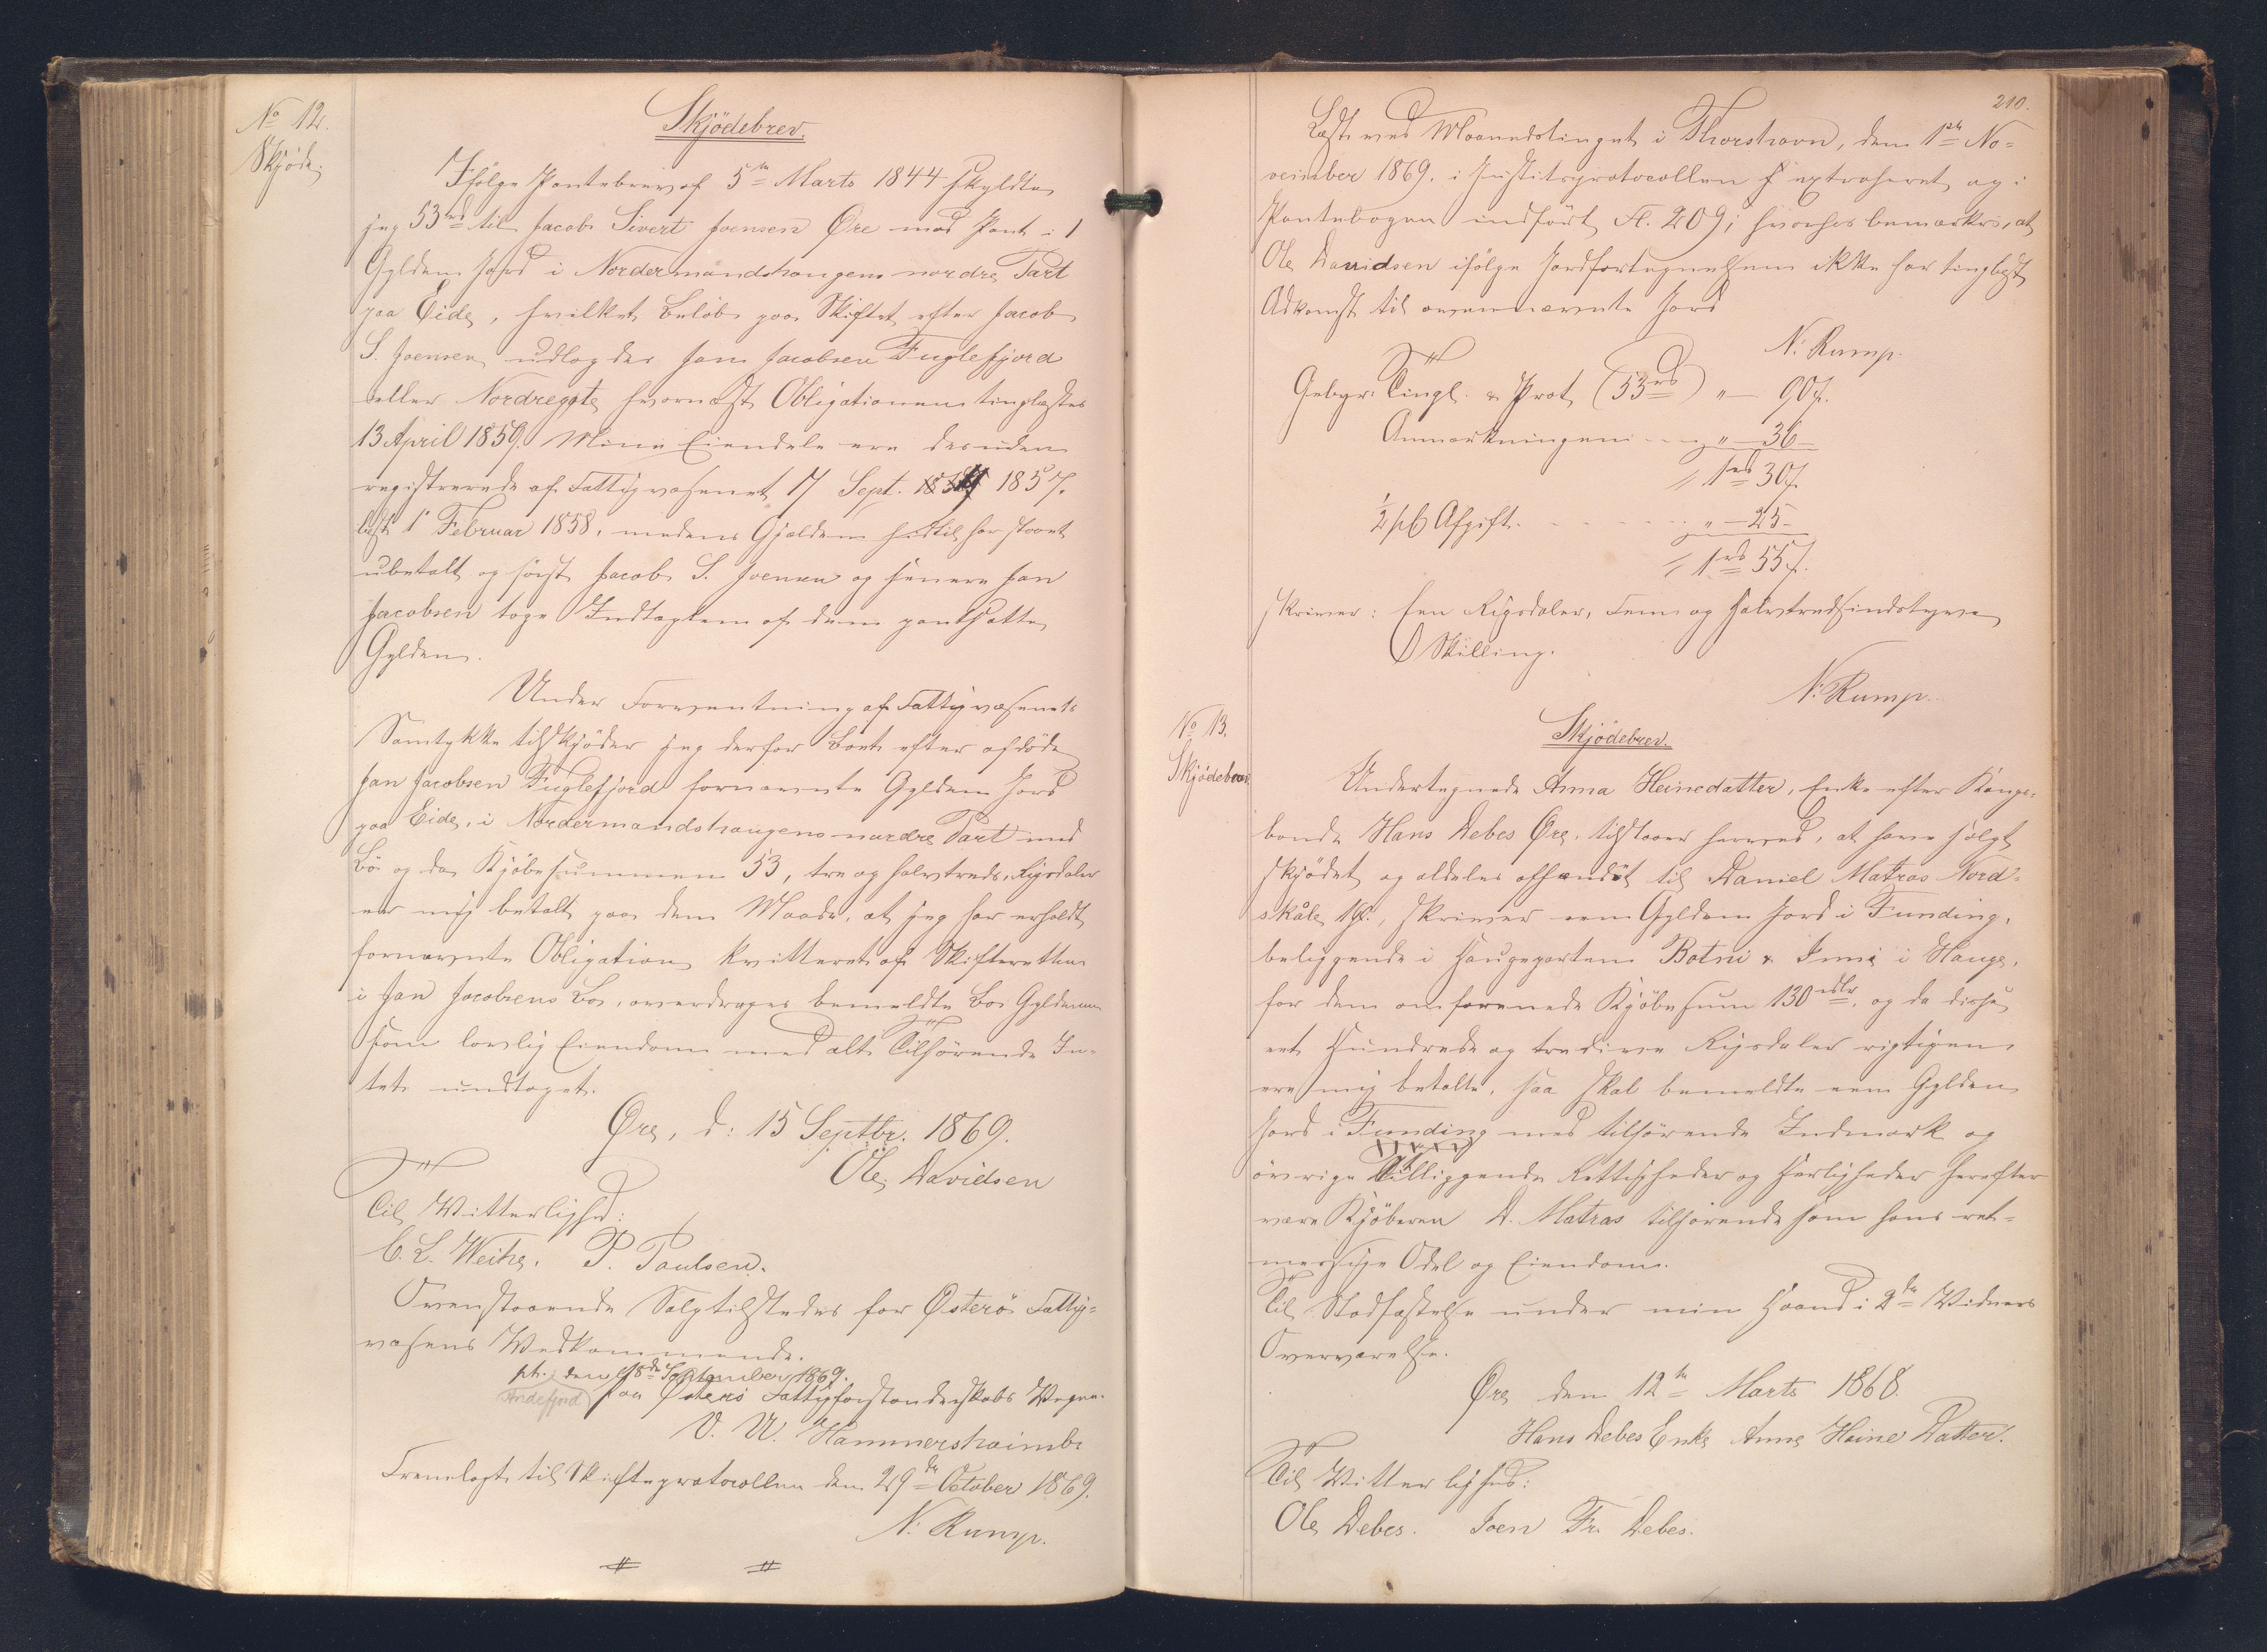 No 12.
Skjøde
Skjödebrev.
Ifølge Pantebrev af 5te Marts 1844 skyldte
jeg 53rd til Jacob Sivert Joensen Øre mod Pant i 1
Gylden Jord i Nordermandshougens nordre Part
paa Eide, hvilket Beløb paa Skiftet efter Jacob
S. Joensen udlagdes Jan Jacobsen Fuglefjord
eller Nordregøte, hvornæst Obligationen tinglæstes
13 April 1859. Mine Eiendele ere desuden
registrerede af Fattigvæsenet 17 Sept. 1857.
læst 1 Februar 1858, medens Gjælden hidtil har staaet
ubetalt og først Jacob S. Joensen og senere Jan
Jacobsen toge Indtægten af den pantsatte
Gylden.
Under Forventning af Fattigvæsenets
Samtykke tilskjöder jeg derfor Boet efter afdöde
Jan Jacobsen Fuglefjord fornævnte Gylden Jord
paa Eide, i Nordermandshougens nordre Part med
Bö og da Kjöbesummen 53, tre og halvtreds, Rigsdaler
er mig betalt paa den Maade, at jeg har erholdt
fornævnte Obligation kvitteret af Skifteretten
i Jan Jacobsens Bo, overdrages bemeldte Bo Gyldenen
som lovlig Eiendom med alt Tilhörende In-
tet undtaget.
Øre, d: 15 Septbr. 1869.
Ole Davidsen
Til Vitterlighed:
C. L. Weihe. P. Poulsen.
Ovenstaaende Salg tilstedes for Østerö Fattig-
væsens Vedkommende.
pt. den 18de September 1869.
Andefjord paa Østerö Fattigforstanderskabs Vegne.
V. U. Hammershaimb
Fremlagt til Skifteprotocollen den 29de October 1869.
N. Rump.
210.
Læst ved Maanedstinget i Thorshavn, den 1ste No-
vember 1869. i Justitsprotocollen extraheret og i
Pantebogen indfört Fl. 209; hvorhos bemærkes, at
Ole Davidsen ifölge Jordfortegnelsen ikke har tinglæst
Adkomst til ovennævnte Jord
N. Rump.
Gebyr: Tingl. & Prot. (53rd) " — 90 f.
Anmærkningen " — 36 —
1rd 30 f.
1/2 pC Afgift. " — 25 —
1rd 55 f.
skriver: Een Rigsdaler, Fem og Halvtredsindstyve
Skilling.
N. Rump.
No 13.
Skjödebrev
Skjödebrev.
Undertegnede Anna Heinedatter, Enke efter Konge-
bonde Hans Debes Øre, tilstaaer herved, at have solgt
skjödet og aldeles afhændet til Daniel Matras Nord-
skåle 1Gl., skriver een Gylden Jord i Funding,
beliggende i Haugeparten Botni & Inni i Hauge,
for den omforenede Kjöbesum 130rdlr. og da disse
eet Hundrede og tredive Rigsdaler rigtigen
ere mig betalte, saa skal bemeldte een Gylden
Jord i Funding med tilhörende Indmark og
övrige Tilliggende Rettigheder og Herligheder herefter
være Kjöberen D. Matras tilhörende som hans ret-
mæssige Odel og Eiendom.
Til Stadfæstelse under min Haand i 2de Vidners
Overværelse.
Øre den 12te Marts 1868.
Hans Debes Enke Anne Heine Datter.
Til Vitterlighed:
Ole Debes. Joen Fr. Debes.